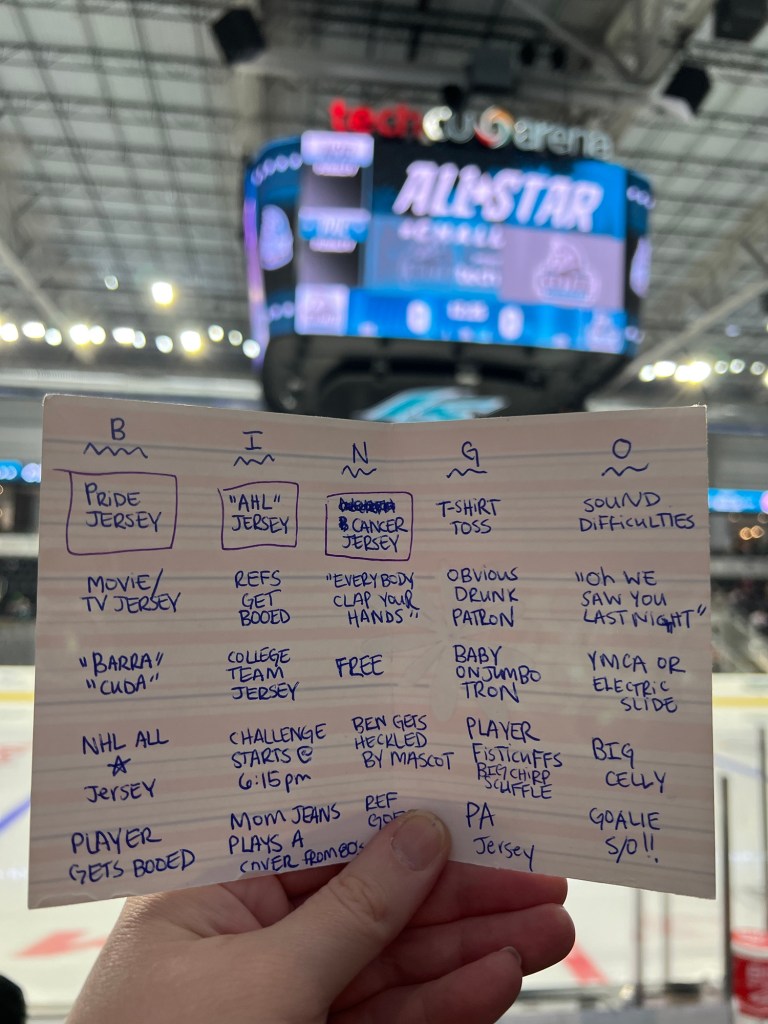 tech cu arena
ALL★STAR
B I N G O
PRIDE
JERSEY
"AHL"
JERSEY
CANCER
JERSEY
T-SHIRT
TOSS
SOUND
DIFFICULTIES
MOVIE/
TV JERSEY
REFS
GET
BOOED
"EVERYBODY
CLAP YOUR
HANDS"
OBVIOUS
DRUNK
PATRON
"Oh WE
SAW YOU
LAST NIGHT"
"BARRA"
"CUDA"
COLLEGE
TEAM
JERSEY
FREE
BABY
ON JUMBO
TRON
YMCA OR
ELECTRIC
SLIDE
NHL ALL
☆
JERSEY
CHALLENGE
STARTS @
6:15pm
BEN GETS
HECKLED
BY MASCOT
PLAYER
FISTICUFFS
BIG CHIRP
SCUFFLE
BIG
CELLY
PLAYER
GETS BOOED
MOM JEANS
PLAYS A
COVER FROM 80's
REF
PA
Jersey
GOALIE
S/O!!